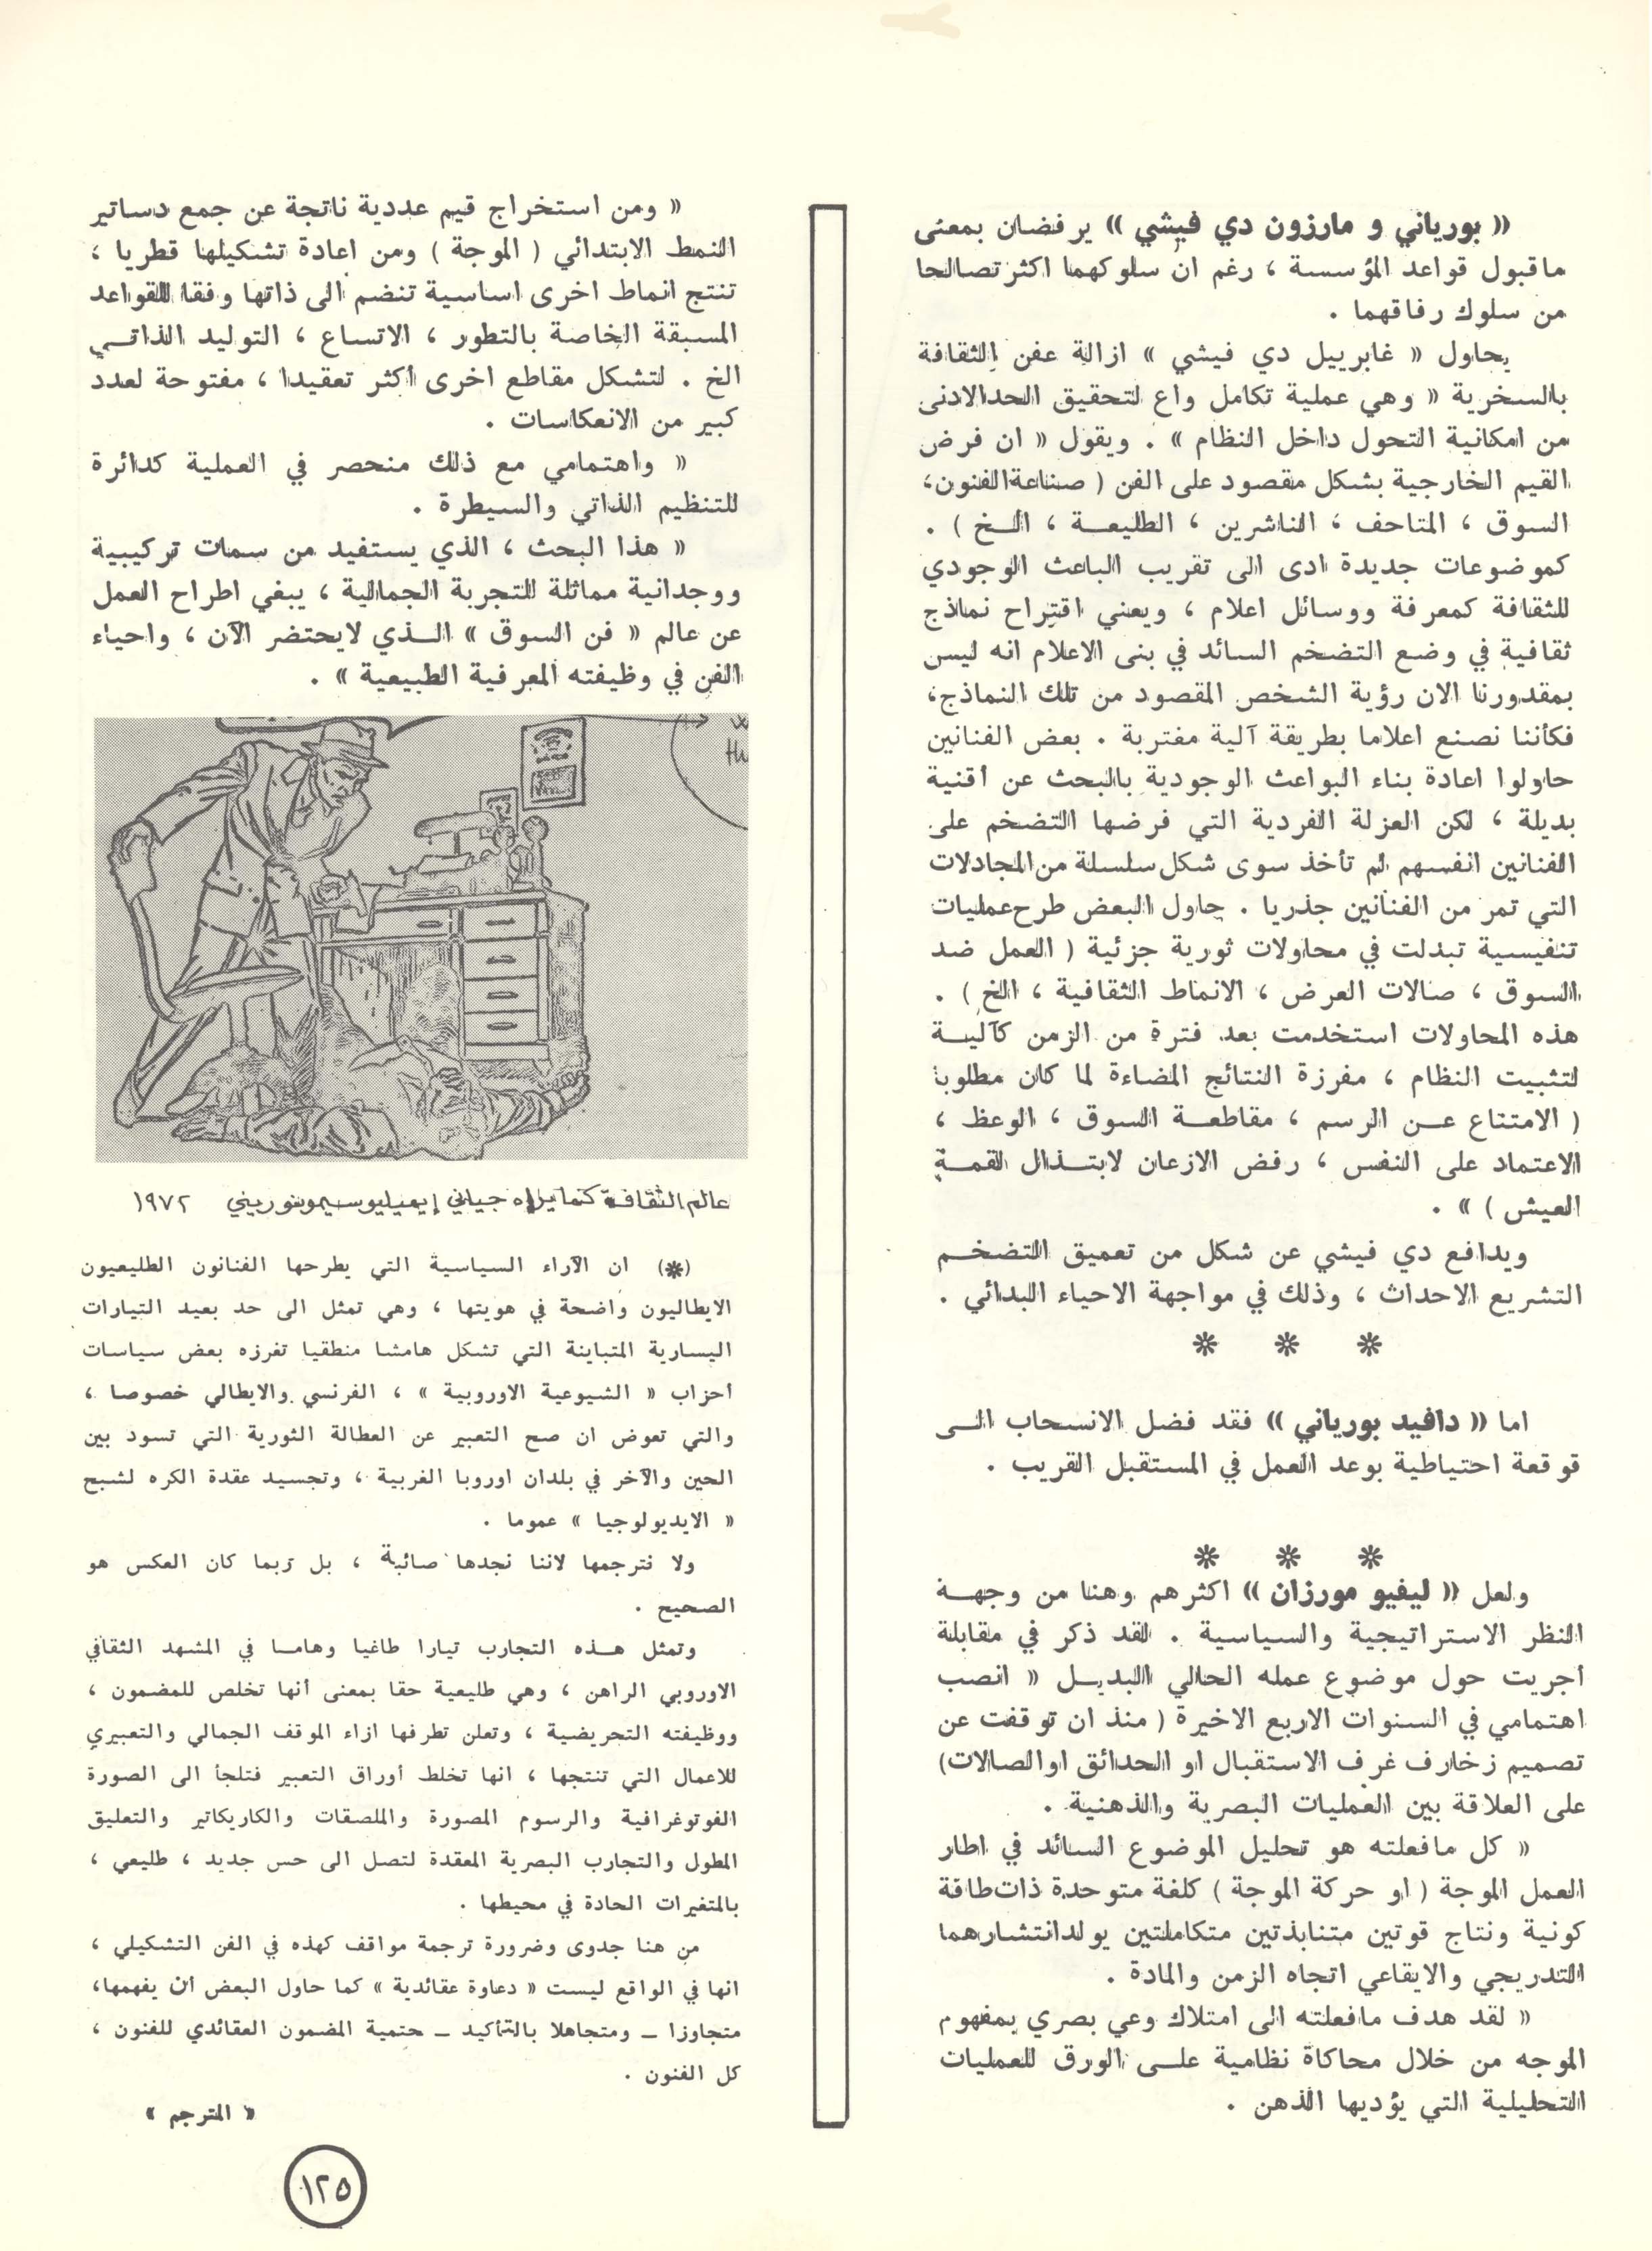 « بورياني و مارزون دي فيشي » يرفضان بمعنى
ماقبول قواعد المؤسسة ، رغم ان سلوكهما اكثر تصالحا
من سلوك رفاقهما .
يحاول « غابرييل دي فيشي » ازالة عفن الثقافة
بالسخرية « وهي عملية تكامل واع لتحقيق الحد الادنى
من امكانية التحول داخل النظام » . ويقول « ان فرض
القيم الخارجية بشكل مقصود على الفن ( صناعة الفنون،
السوق ، المتاحف ، الناشرين ، الطليعة ، الخ ) .
كموضوعات جديدة ادى الى تقريب الباعث الوجودي
للثقافة كمعرفة ووسائل اعلام ، ويعني اقتراح نماذج
ثقافية في وضع التضخم السائد في بنى الاعلام انه ليس
بمقدورنا الان رؤية الشخص المقصود من تلك النماذج،
فكأننا نصنع اعلاما بطريقة آلية مغتربة . بعض الفنانين
حاولوا اعادة بناء البواعث الوجودية بالبحث عن أقنية
بديلة ، لكن العزلة الفردية التي فرضها التضخم على
الفنانين انفسهم لم تأخذ سوى شكل سلسلة من المجادلات
التي تمر من الفنانين جذريا . حاول البعض طرح عمليات
تنفيسية تبدلت في محاولات ثورية جزئية ( العمل ضد
السوق ، صالات العرض ، الانماط الثقافية ، الخ ) .
هذه المحاولات استخدمت بعد فترة من الزمن كآلية
لتثبيت النظام ، مفرزة النتائج المضاءة لما كان مطلوبا
( الامتناع عن الرسم ، مقاطعة السوق ، الوعظ ،
الاعتماد على النفس ، رفض الازعان لابتذال لقمة
العيش ) » .
ويدافع دي فيشي عن شكل من تعميق التضخم
التشريع الاحداث ، وذلك في مواجهة الاحياء البدائي .
* * *
اما « دافيد بورياني » فقد فضل الانسحاب الى
قوقعة احتياطية بوعد العمل في المستقبل القريب .
* * *
ولعل « ليفيو مورزان » اكثرهم وهنا من وجهة
النظر الاستراتيجية والسياسية . لقد ذكر في مقابلة
أجريت حول موضوع عمله الحالي البديل « انصب
اهتمامي في السنوات الاربع الاخيرة ( منذ ان توقفت عن
تصميم زخارف غرف الاستقبال او الحدائق او الصالات)
على العلاقة بين العمليات البصرية والذهنية .
« كل مافعلته هو تحليل الموضوع السائد في اطار
العمل الموجة ( او حركة الموجة ) كلفة متوحدة ذات طاقة
كونية ونتاج قوتين متنابذتين متكاملتين يولد انتشارهما
التدريجي والايقاعي اتجاه الزمن والمادة .
« لقد هدف مافعلته الى امتلاك وعي بصري بمفهوم
الموجه من خلال محاكاة نظامية على الورق للعمليات
التحليلية التي يؤديها الذهن .
« ومن استخراج قيم عددية ناتجة عن جمع دساتير
النمط الابتدائي ( الموجة ) ومن اعادة تشكيلها قطريا ،
تنتج انماط اخرى اساسية تنضم الى ذاتها وفقا للقواعد
المسبقة الخاصة بالتطور ، الاتساع ، التوليد الذاتي
الخ . لتشكل مقاطع اخرى أكثر تعقيدا ، مفتوحة لعدد
كبير من الانعكاسات .
« واهتمامي مع ذلك منحصر في العملية كدائرة
للتنظيم الذاتي والسيطرة .
« هذا البحث ، الذي يستفيد من سمات تركيبية
ووجدانية مماثلة للتجربة الجمالية ، يبغي اطراح العمل
عن عالم « فن السوق » الذي لايحتضر الآن ، واحياء
الفن في وظيفته المعرفية الطبيعية » .
عالم الثقافة كما يراه جياني إيميليو سيمونوريني ١٩٧٢
(*) ان الآراء السياسية التي يطرحها الفنانون الطليعيون
الايطاليون واضحة في هويتها ، وهي تمثل الى حد بعيد التيارات
اليسارية المتباينة التي تشكل هامشا منطقيا تفرزه بعض سياسات
أحزاب « الشيوعية الاوروبية » ، الفرنسي والايطالي خصوصا ،
والتي تعوض ان صح التعبير عن العطالة الثورية التي تسود بين
الحين والآخر في بلدان اوروبا الغربية ، وتجسيد عقدة الكره لشبح
« الايديولوجيا » عموما .
ولا نترجمها لاننا نجدها صائبة ، بل ربما كان العكس هو
الصحيح .
وتمثل هذه التجارب تيارا طاغيا وهاما في المشهد الثقافي
الاوروبي الراهن ، وهي طليعية حقا بمعنى أنها تخلص للمضمون ،
ووظيفته التحريضية ، وتعلن تطرفها ازاء الموقف الجمالي والتعبيري
للاعمال التي تنتجها ، انها تخلط أوراق التعبير فتلجأ الى الصورة
الفوتوغرافية والرسوم المصورة والملصقات والكاريكاتير والتعليق
المطول والتجارب البصرية المعقدة لتصل الى حس جديد ، طليعي ،
بالمتغيرات الحادة في محيطها .
من هنا جدوى وضرورة ترجمة مواقف كهذه في الفن التشكيلي ،
انها في الواقع ليست « دعاوة عقائدية » كما حاول البعض ان يفهمها،
متجاوزا _ ومتجاهلا بالتأكيد _ حتمية المضمون العقائدي للفنون ،
كل الفنون .
« المترجم »
١٢٥